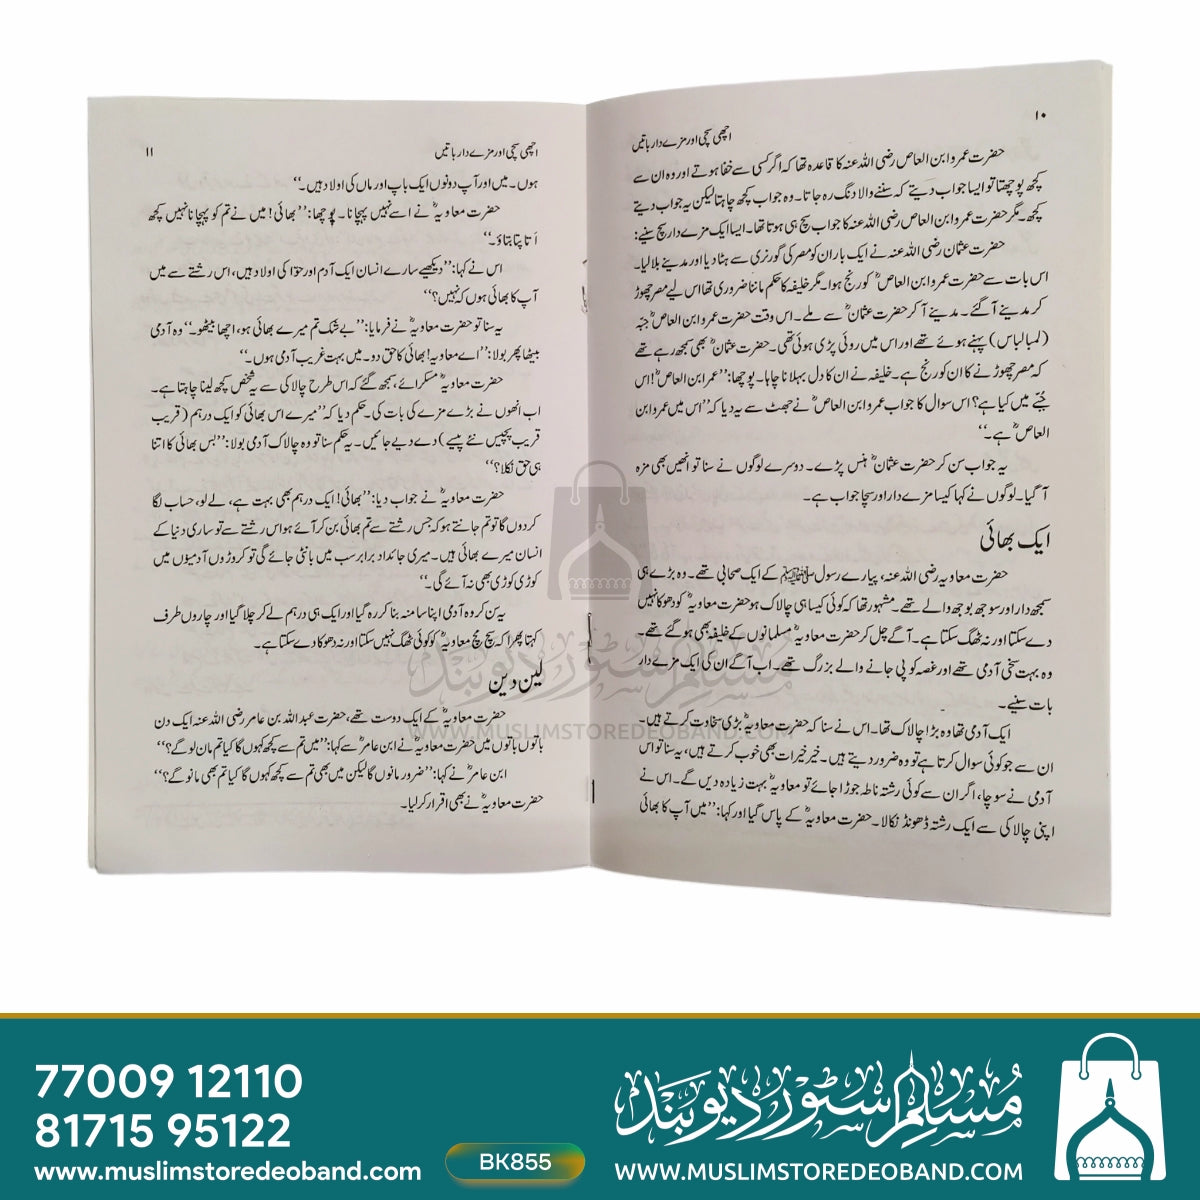 ۱۰
اچھی سچی اور مزے دار باتیں
حضرت عمرو ابن العاص رضی اللہ عنہ کا قاعدہ تھا کہ اگر کسی سے خفا ہوتے اور وہ ان سے
کچھ پوچھتا تو ایسا جواب دیتے کہ سننے والا دنگ رہ جاتا۔ وہ جواب کچھ چاہتا لیکن یہ جواب دیتے
کچھ۔ مگر حضرت عمرو ابن العاص رضی اللہ عنہ کا جواب سچ ہی ہوتا تھا۔ ایسا ایک مزے دار سچ سنیے:
حضرت عثمان رضی اللہ عنہ نے ایک بار ان کو مصر کی گورنری سے ہٹا دیا اور مدینے بلا لیا۔
اس بات سے حضرت عمرو ابن العاصؓ کو رنج ہوا۔ مگر خلیفہ کا حکم ماننا ضروری تھا اس لیے مصر چھوڑ
کر مدینے آگئے۔ مدینے آکر حضرت عثمانؓ سے ملے۔ اس وقت حضرت عمرو ابن العاصؓ جبّہ
(لمبا لباس) پہنے ہوئے تھے اور اس میں روئی پڑی ہوئی تھی۔ حضرت عثمانؓ بھی سمجھ رہے تھے
کہ مصر چھوڑنے کا ان کو رنج ہے۔ خلیفہ نے ان کا دل بہلانا چاہا۔ پوچھا: ”عمر ابن العاصؓ! اس
جبّے میں کیا ہے؟ اس سوال کا جواب عمرو ابن العاصؓ نے جھٹ سے یہ دیا کہ ”اس میں عمرو ابن
العاصؓ ہے۔“
یہ جواب سن کر حضرت عثمانؓ ہنس پڑے۔ دوسرے لوگوں نے سنا تو انھیں بھی مزہ
آگیا۔ لوگوں نے کہا کیسا مزے دار اور سچا جواب ہے۔
ایک بھائی
حضرت معاویہ رضی اللہ عنہ، پیارے رسول ﷺ کے ایک صحابی تھے۔ وہ بڑے ہی
سمجھ دار اور سوجھ بوجھ والے تھے۔ مشہور تھا کہ کوئی کیسا ہی چالاک ہو حضرت معاویہؓ کو دھوکا نہیں
دے سکتا اور نہ ٹھگ سکتا ہے۔ آگے چل کر حضرت معاویہؓ مسلمانوں کے خلیفہ بھی ہو گئے تھے۔
وہ بہت سخی آدمی تھے اور غصہ کو پی جانے والے بزرگ تھے۔ اب آگے ان کی ایک مزے دار
بات سنیے۔
ایک آدمی تھا وہ بڑا چالاک تھا۔ اس نے سنا کہ حضرت معاویہؓ بڑی سخاوت کرتے ہیں۔
ان سے جو کوئی سوال کرتا ہے تو وہ ضرور دیتے ہیں۔ خیر خیرات بھی خوب کرتے ہیں، یہ سنا تو اس
آدمی نے سوچا، اگر ان سے کوئی رشتہ ناطہ جوڑا جائے تو معاویہؓ بہت زیادہ دیں گے۔ اس نے
اپنی چالاکی سے ایک رشتہ ڈھونڈ نکالا۔ حضرت معاویہؓ کے پاس گیا اور کہا: ”میں آپ کا بھائی
۱۱
اچھی سچی اور مزے دار باتیں
ہوں۔ میں اور آپ دونوں ایک باپ اور ماں کی اولاد ہیں۔“
حضرت معاویہؓ نے اسے نہیں پہچانا۔ پوچھا: ”بھائی! میں نے تم کو پہچانا نہیں کچھ
اَتا پتا بتاؤ۔“
اس نے کہا: ”دیکھیے سارے انسان ایک آدم اور حوّا کی اولاد ہیں، اس رشتے سے میں
آپ کا بھائی ہوں کہ نہیں؟“
یہ سنا تو حضرت معاویہؓ نے فرمایا: ”بے شک تم میرے بھائی ہو، اچھا بیٹھو۔“ وہ آدمی
بیٹھا پھر بولا: ”اے معاویہ! بھائی کا حق دو۔ میں بہت غریب آدمی ہوں۔“
حضرت معاویہؓ مسکرائے، سمجھ گئے کہ اس طرح چالاکی سے یہ شخص کچھ لینا چاہتا ہے۔
اب انھوں نے بڑے مزے کی بات کی۔ حکم دیا کہ ”میرے اس بھائی کو ایک درہم (قریب
قریب پچیس نئے پیسے) دے دیے جائیں۔ یہ حکم سنا تو وہ چالاک آدمی بولا: ”بس بھائی کا اتنا
ہی حق نکلا؟“
حضرت معاویہؓ نے جواب دیا: ”بھائی! ایک درہم بھی بہت ہے، لے لو، حساب لگا
کر دوں گا تو تم جانتے ہو کہ جس رشتے سے تم بھائی بن کر آئے ہو اس رشتے سے تو ساری دنیا کے
انسان میرے بھائی ہیں۔ میری جائداد برابر سب میں بانٹی جائے گی تو کروڑوں آدمیوں میں
کوڑی کوڑی بھی نہ آئے گی۔“
یہ سن کر وہ آدمی اپنا سا منہ بنا کر رہ گیا اور ایک ہی درہم لے کر چلا گیا اور چاروں طرف
کہتا پھرا کہ سچ مچ معاویہؓ کو کوئی ٹھگ نہیں سکتا اور نہ دھوکا دے سکتا ہے۔
لین دین
حضرت معاویہؓ کے ایک دوست تھے، حضرت عبداللہ بن عامر رضی اللہ عنہ ایک دن
باتوں باتوں میں حضرت معاویہؓ نے ابن عامرؓ سے کہا: ”میں تم سے کچھ کہوں گا کیا تم مان لوگے؟“
ابن عامرؓ نے کہا: ”ضرور مانوں گا لیکن میں بھی تم سے کچھ کہوں گا کیا تم بھی مانوگے؟“
حضرت معاویہؓ نے بھی اقرار کر لیا۔
مسلم سٹور دیوبند
WWW.MUSLIMSTOREDEOBAND.COM
77009 12110
81715 95122
www.muslimstoredeoband.com
BK855
مسلم سٹور دیوبند
WWW.MUSLIMSTOREDEOBAND.COM